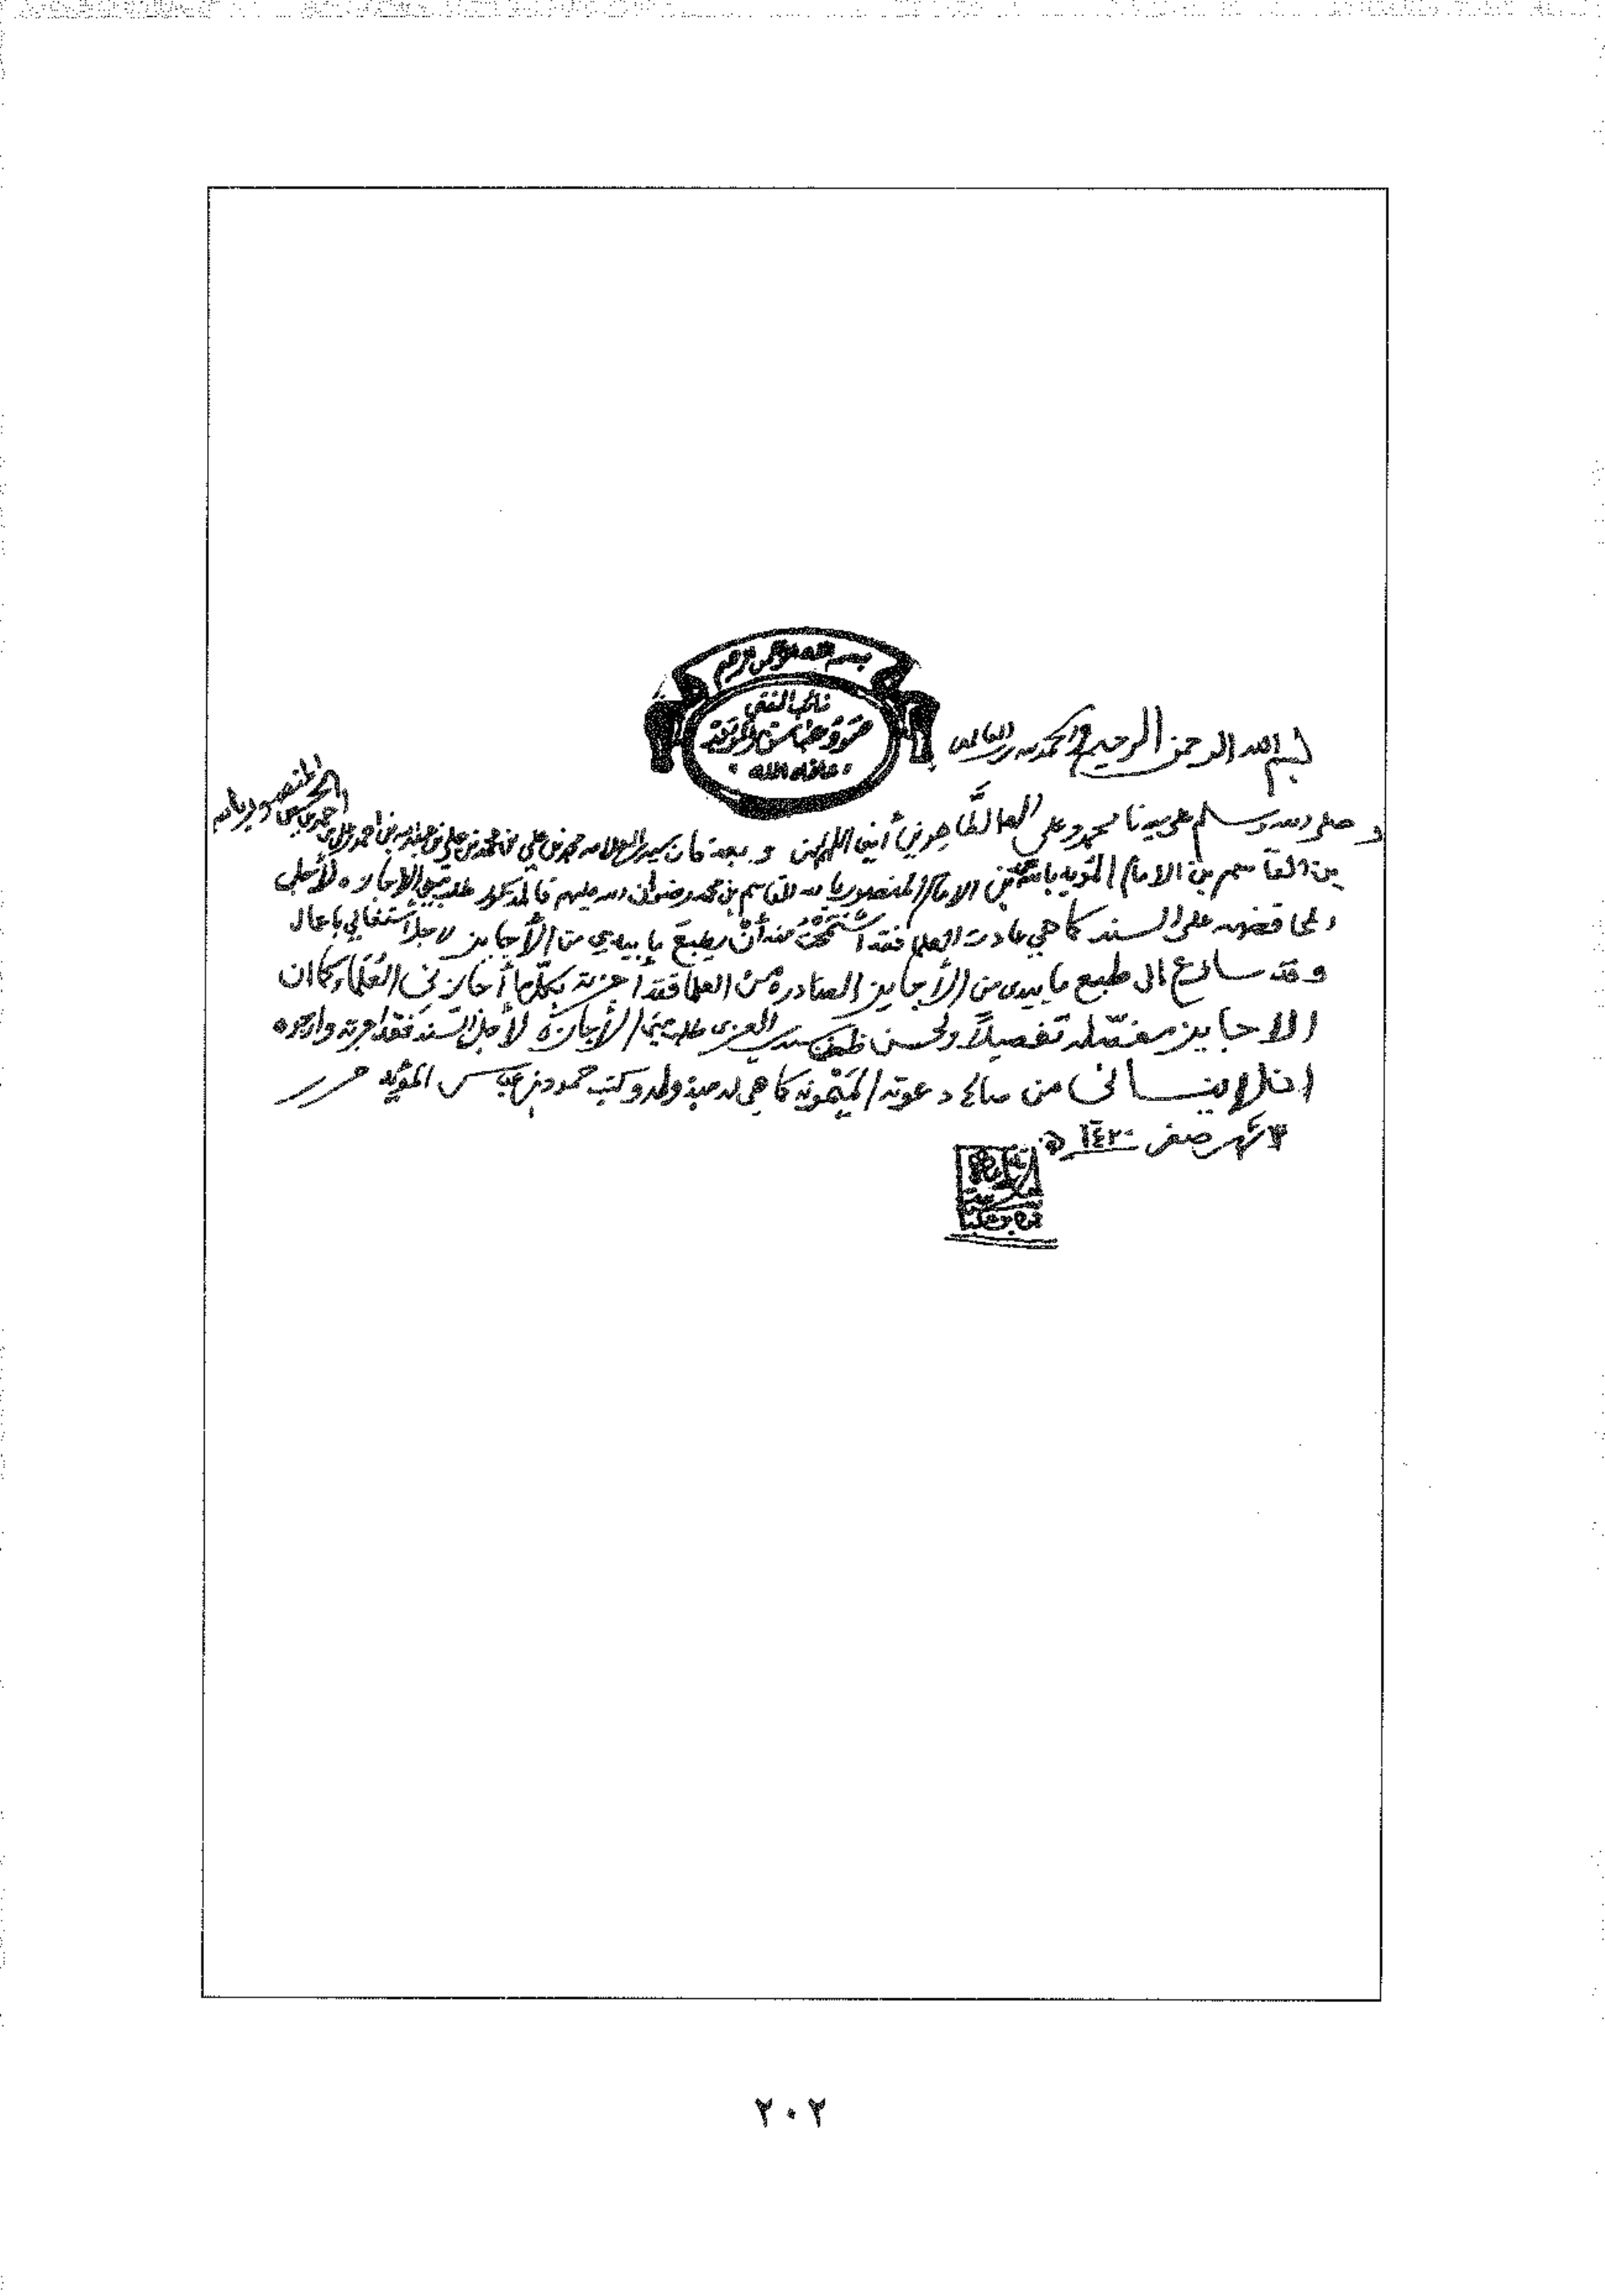 بسم الله الرحمن الرحيم
نائب المفتي
حمود عباس المؤيد
عافاه الله
بسم الله الرحمن الرحيم والحمد لله رب العالمين
و صلى الله وسلم على سيدنا محمد وعلى آله الطاهرين أمين اللهم أمين و بعد فان سيدي العلامه محمد بن علي بن محمد بن علي بن عبدالله بن احمد بن علي بن احمد بن الحسين
المنصور بالله
بن القاسم بن الامام المؤيد بالله محمد بن الامام المنصور بالله القاسم بن محمد رضوان الله عليهم فالمذكور طلب مني الاجازه لأجل
المحافضه على السند كما هي عادت العلما فقد منه أنْ يطبعَ ما بيدي من الأجايز لاجل أشتغالي باعمال
وقد سارع الى طبع ما بيدي من الأجايز الصادره من العلما فقد اجزته بكلّما أجازني العُلَماء وكما ان
الاجايز مفصّله تفصيلاً ولحسن ظن سيدي العزي طلب مني الأجازه لأجل السند فقد اجزته وارجوه
ان لا ينساني من صالح دعوته كما هي له مبذوله وكتب حمود بن عباس المؤيد حرر
٣ شهر صفر ١٤٢٠ ه
٢٠٢